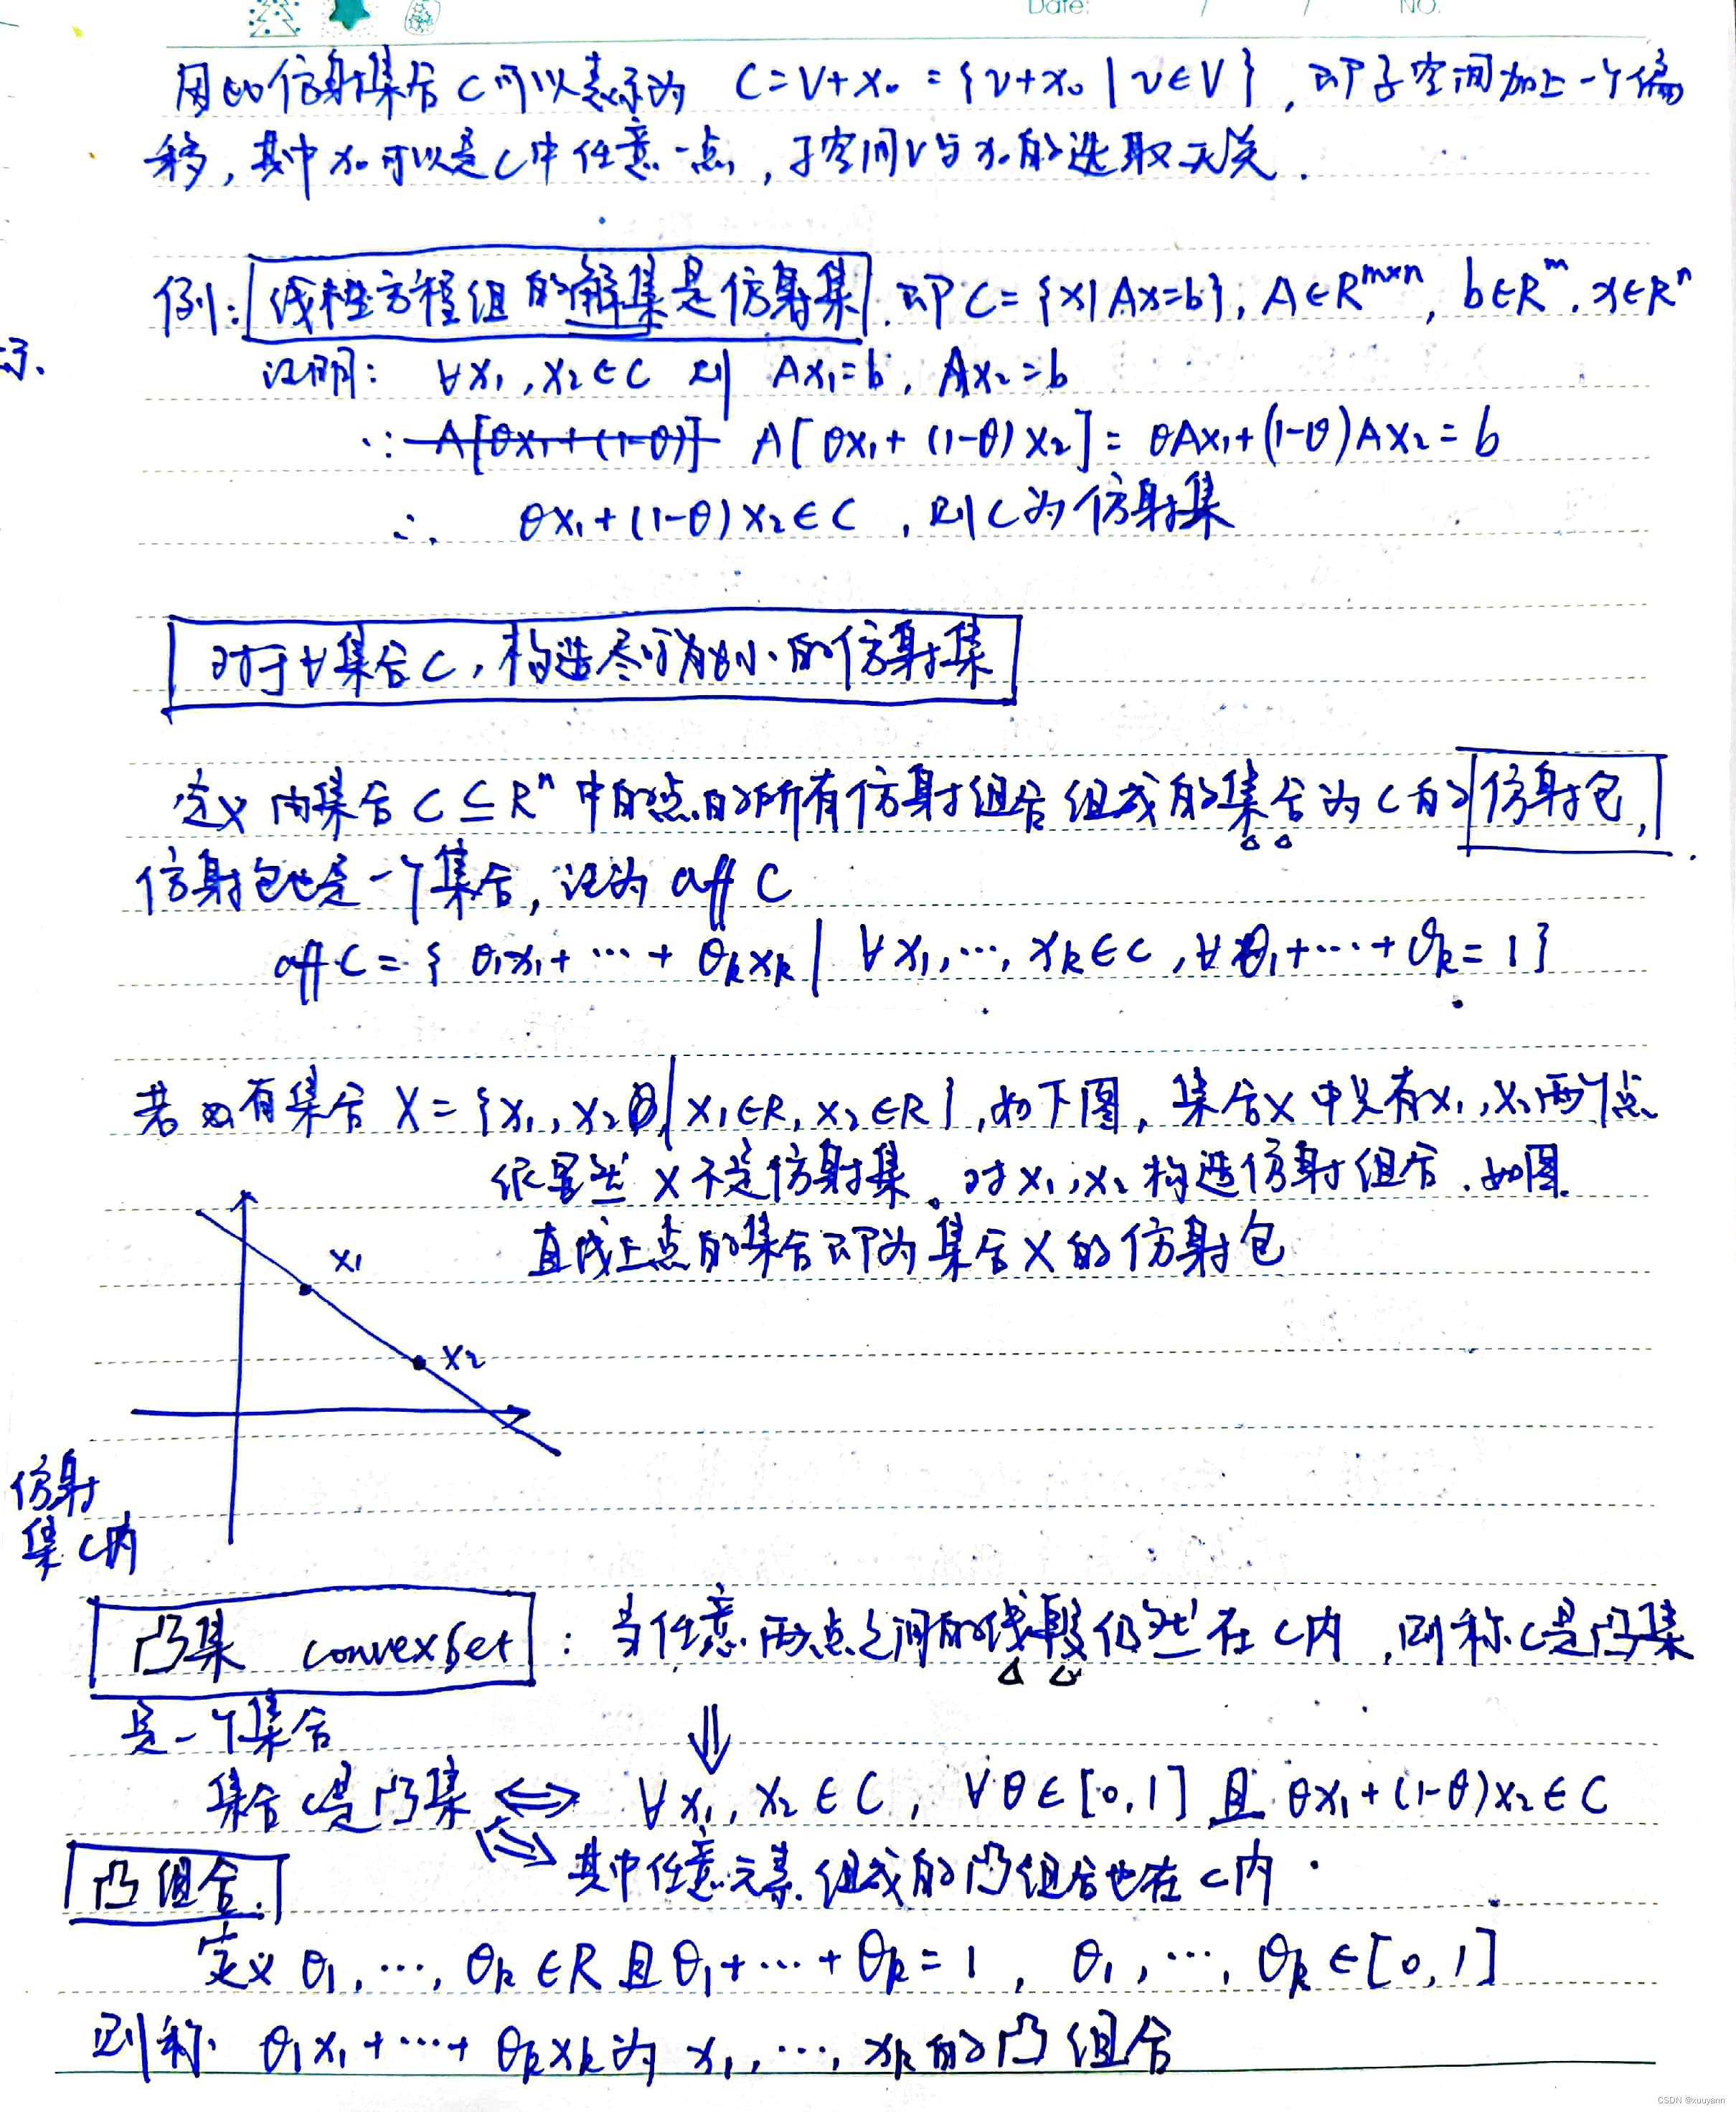 Date: / / NO.
因此仿射集合C可以表示为 C=V+x₀={v+x₀|v∈V}, 即子空间加上一个偏
移,其中x₀可以是C中任意一点,子空间V与x₀的选取无关.
例: 线性方程组的解集是仿射集. 即C={x|Ax=b}, A∈R^{m×n}, b∈R^m, x∈R^n
示.
证明: ∀x₁,x₂∈C 则 Ax₁=b, Ax₂=b
∵ A[θx₁+(1-θ)] A[θx₁+(1-θ)x₂]=θAx₁+(1-θ)Ax₂=b
∴ θx₁+(1-θ)x₂∈C ,则C为仿射集
对于∀集合C,构造尽可能小的仿射集
定义 由集合C⊆R^n中的点的所有仿射组合组成的集合为C的仿射包,
仿射包也是一个集合,记为 aff C
aff C={θ₁x₁+…+θₖxₖ|∀x₁,…,xₖ∈C,∀θ₁+…+θₖ=1}
若有集合X={x₁,x₂|x₁∈R,x₂∈R},如下图,集合X中只有x₁,x₂两个点
很显然X不是仿射集。对x₁,x₂构造仿射组合.如图.
直线上点的集合即为集合X的仿射包
x₁
x₂
仿射
集C内
凸集 convex set : 当任意两点之间的线段仍然在C内,则称C是凸集
是一个集合
⇓
集合C是凸集 ⇔ ∀x₁,x₂∈C, ∀θ∈[0,1] 且 θx₁+(1-θ)x₂∈C
⇔ 其中任意元素组成的凸组合也在C内.
凸组合.
定义 θ₁,…,θₖ∈R 且 θ₁+…+θₖ=1, θ₁,…,θₖ∈[0,1]
则称 θ₁x₁+…+θₖxₖ为 x₁,…,xₖ的凸组合
CSDN @xuuyann